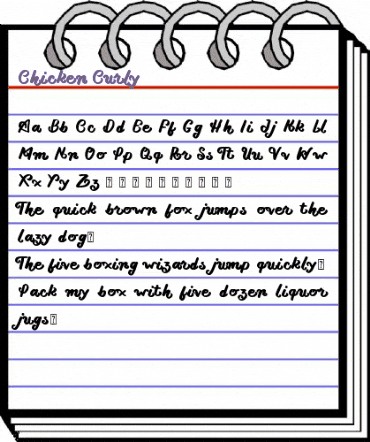 Chicken Curly
Aa Bb Cc Dd Ee Ff Gg Hh Ii Jj Kk Ll
Mm Nn Oo Pp Qq Rr Ss Tt Uu Vv Ww
Xx Yy Zz □ □ □ □ □ □ □ □ □ □
The quick brown fox jumps over the
lazy dog□
The five boxing wizards jump quickly□
Pack my box with five dozen liquor
jugs□